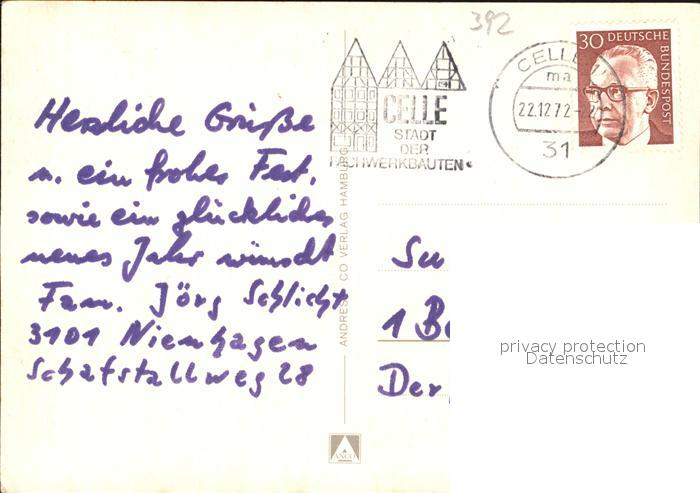 392
30 DEUTSCHE BUNDESPOST
CELLE
ma
22.12.72-
31
CELLE
STADT
DER
FACHWERKBAUTEN
Herzliche Grüße
u. ein frohes Fest,
sowie ein glückliches
neues Jahr wünscht
Fam. Jörg Schlicht
3101 Nienhagen
Schafstallweg 28
ANDRES + CO VERLAG HAMBURG
ANCO
Su
1 Be
Der
privacy protection
Datenschutz